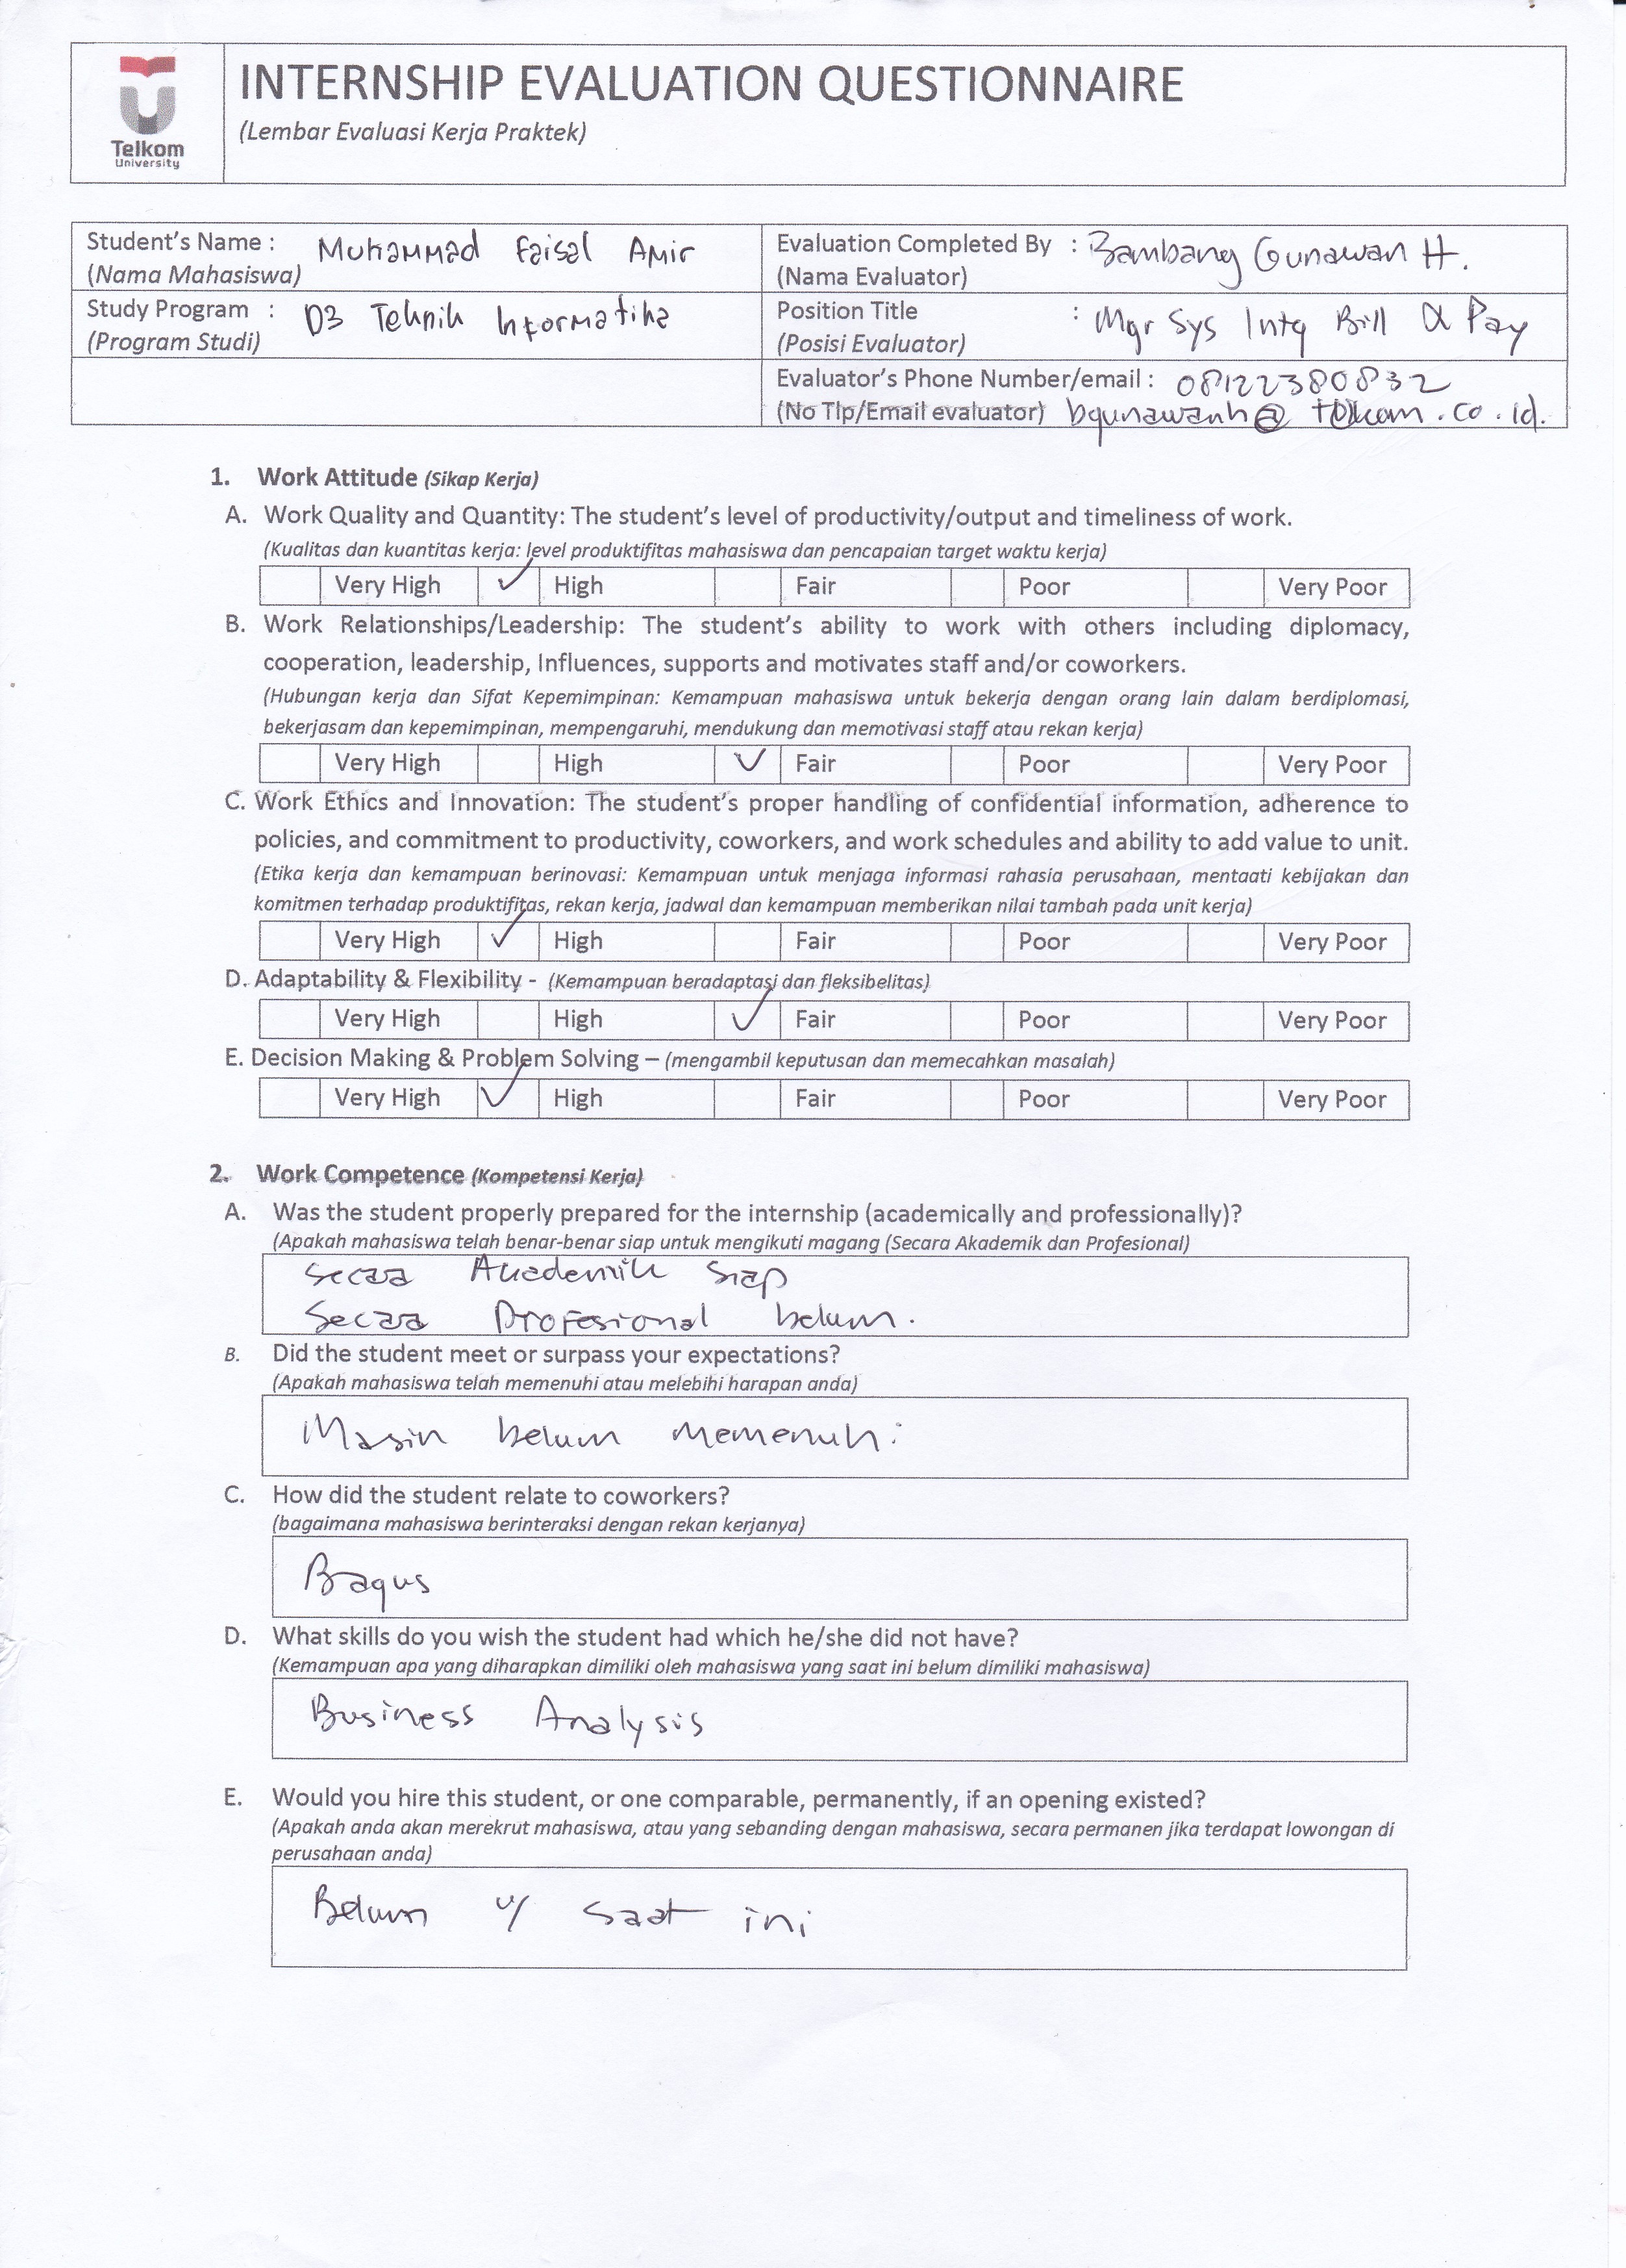 Telkom
University
INTERNSHIP EVALUATION QUESTIONNAIRE
(Lembar Evaluasi Kerja Praktek)
Student's Name : Muhammad Faisal Amir
(Nama Mahasiswa)
Evaluation Completed By : Bambang Gunawan H.
(Nama Evaluator)
Study Program : D3 Teknik Informatika
(Program Studi)
Position Title : Mgr Sys Intg Bill & Pay
(Posisi Evaluator)
Evaluator's Phone Number/email : 08122380832
(No Tlp/Email evaluator) bgunawanh@telkom.co.id.
1. Work Attitude (Sikap Kerja)
A. Work Quality and Quantity: The student's level of productivity/output and timeliness of work.
(Kualitas dan kuantitas kerja: level produktifitas mahasiswa dan pencapaian target waktu kerja)
Very High ✓ High Fair Poor Very Poor
B. Work Relationships/Leadership: The student's ability to work with others including diplomacy,
cooperation, leadership, Influences, supports and motivates staff and/or coworkers.
(Hubungan kerja dan Sifat Kepemimpinan: Kemampuan mahasiswa untuk bekerja dengan orang lain dalam berdiplomasi,
bekerjasam dan kepemimpinan, mempengaruhi, mendukung dan memotivasi staff atau rekan kerja)
Very High High ✓ Fair Poor Very Poor
C. Work Ethics and Innovation: The student's proper handling of confidential information, adherence to
policies, and commitment to productivity, coworkers, and work schedules and ability to add value to unit.
(Etika kerja dan kemampuan berinovasi: Kemampuan untuk menjaga informasi rahasia perusahaan, mentaati kebijakan dan
komitmen terhadap produktifitas, rekan kerja, jadwal dan kemampuan memberikan nilai tambah pada unit kerja)
Very High ✓ High Fair Poor Very Poor
D. Adaptability & Flexibility - (Kemampuan beradaptasi dan fleksibelitas)
Very High High ✓ Fair Poor Very Poor
E. Decision Making & Problem Solving – (mengambil keputusan dan memecahkan masalah)
Very High ✓ High Fair Poor Very Poor
2. Work Competence (Kompetensi Kerja)
A. Was the student properly prepared for the internship (academically and professionally)?
(Apakah mahasiswa telah benar-benar siap untuk mengikuti magang (Secara Akademik dan Profesional)
Secara Akademik Siap
Secara Profesional belum.
B. Did the student meet or surpass your expectations?
(Apakah mahasiswa telah memenuhi atau melebihi harapan anda)
Masih belum memenuhi
C. How did the student relate to coworkers?
(bagaimana mahasiswa berinteraksi dengan rekan kerjanya)
Bagus
D. What skills do you wish the student had which he/she did not have?
(Kemampuan apa yang diharapkan dimiliki oleh mahasiswa yang saat ini belum dimiliki mahasiswa)
Business Analysis
E. Would you hire this student, or one comparable, permanently, if an opening existed?
(Apakah anda akan merekrut mahasiswa, atau yang sebanding dengan mahasiswa, secara permanen jika terdapat lowongan di
perusahaan anda)
Belum u/ saat ini